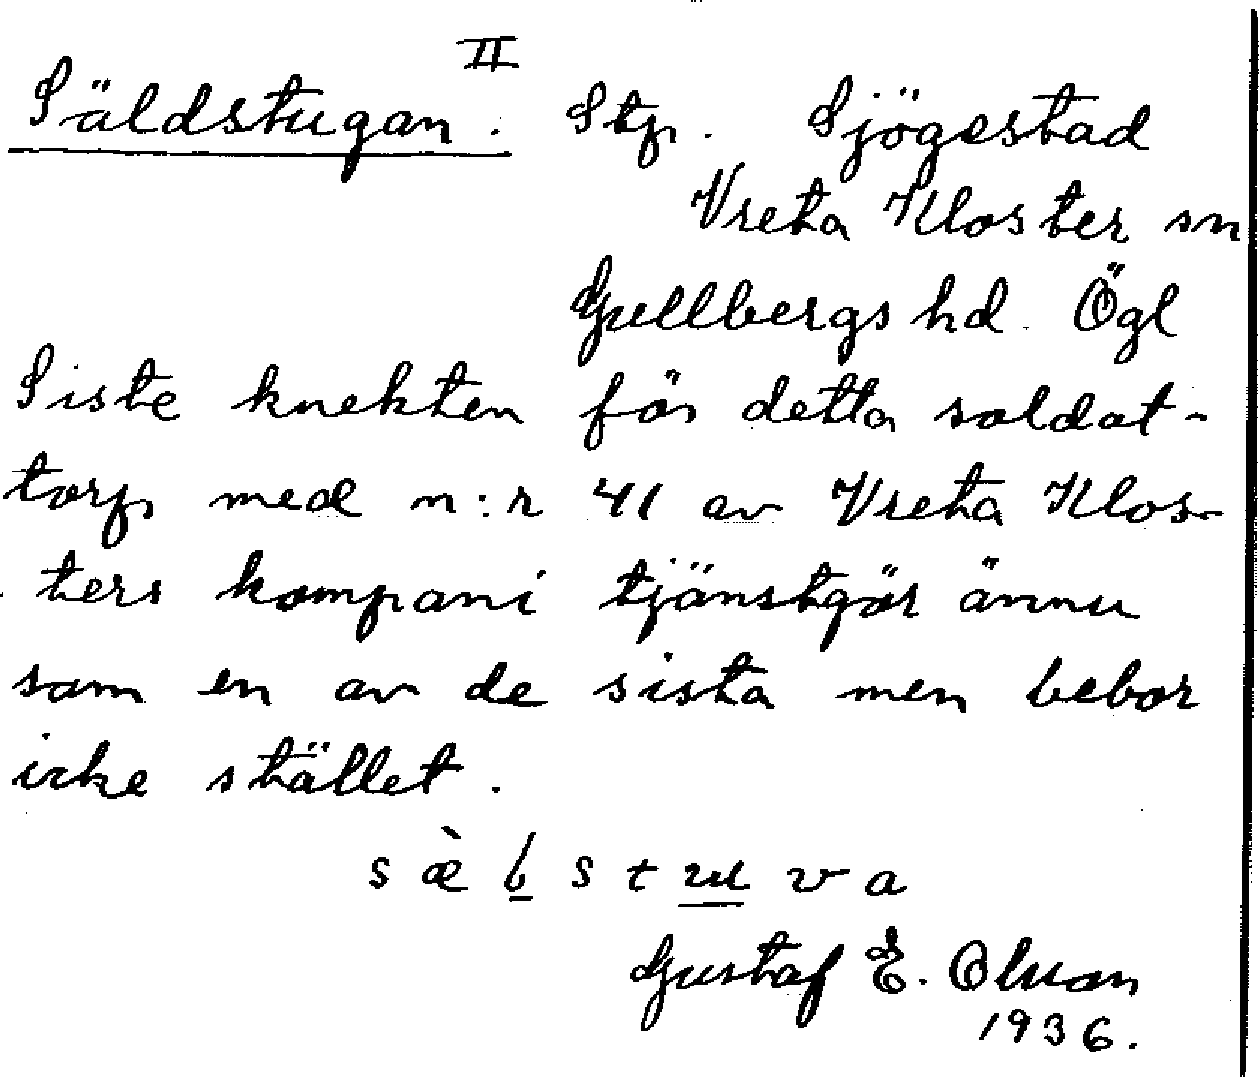 II
Säldstugan. Stp. Sjögestad
Vreta Kloster sn
Gullbergs hd. Ögl
Siste knekten för detta soldat-
torp med n:r 41 av Vreta Klos-
ters kompani tjänstgör ännu
som en av de sista men bebor
icke stället.
Gustaf E.
1936.